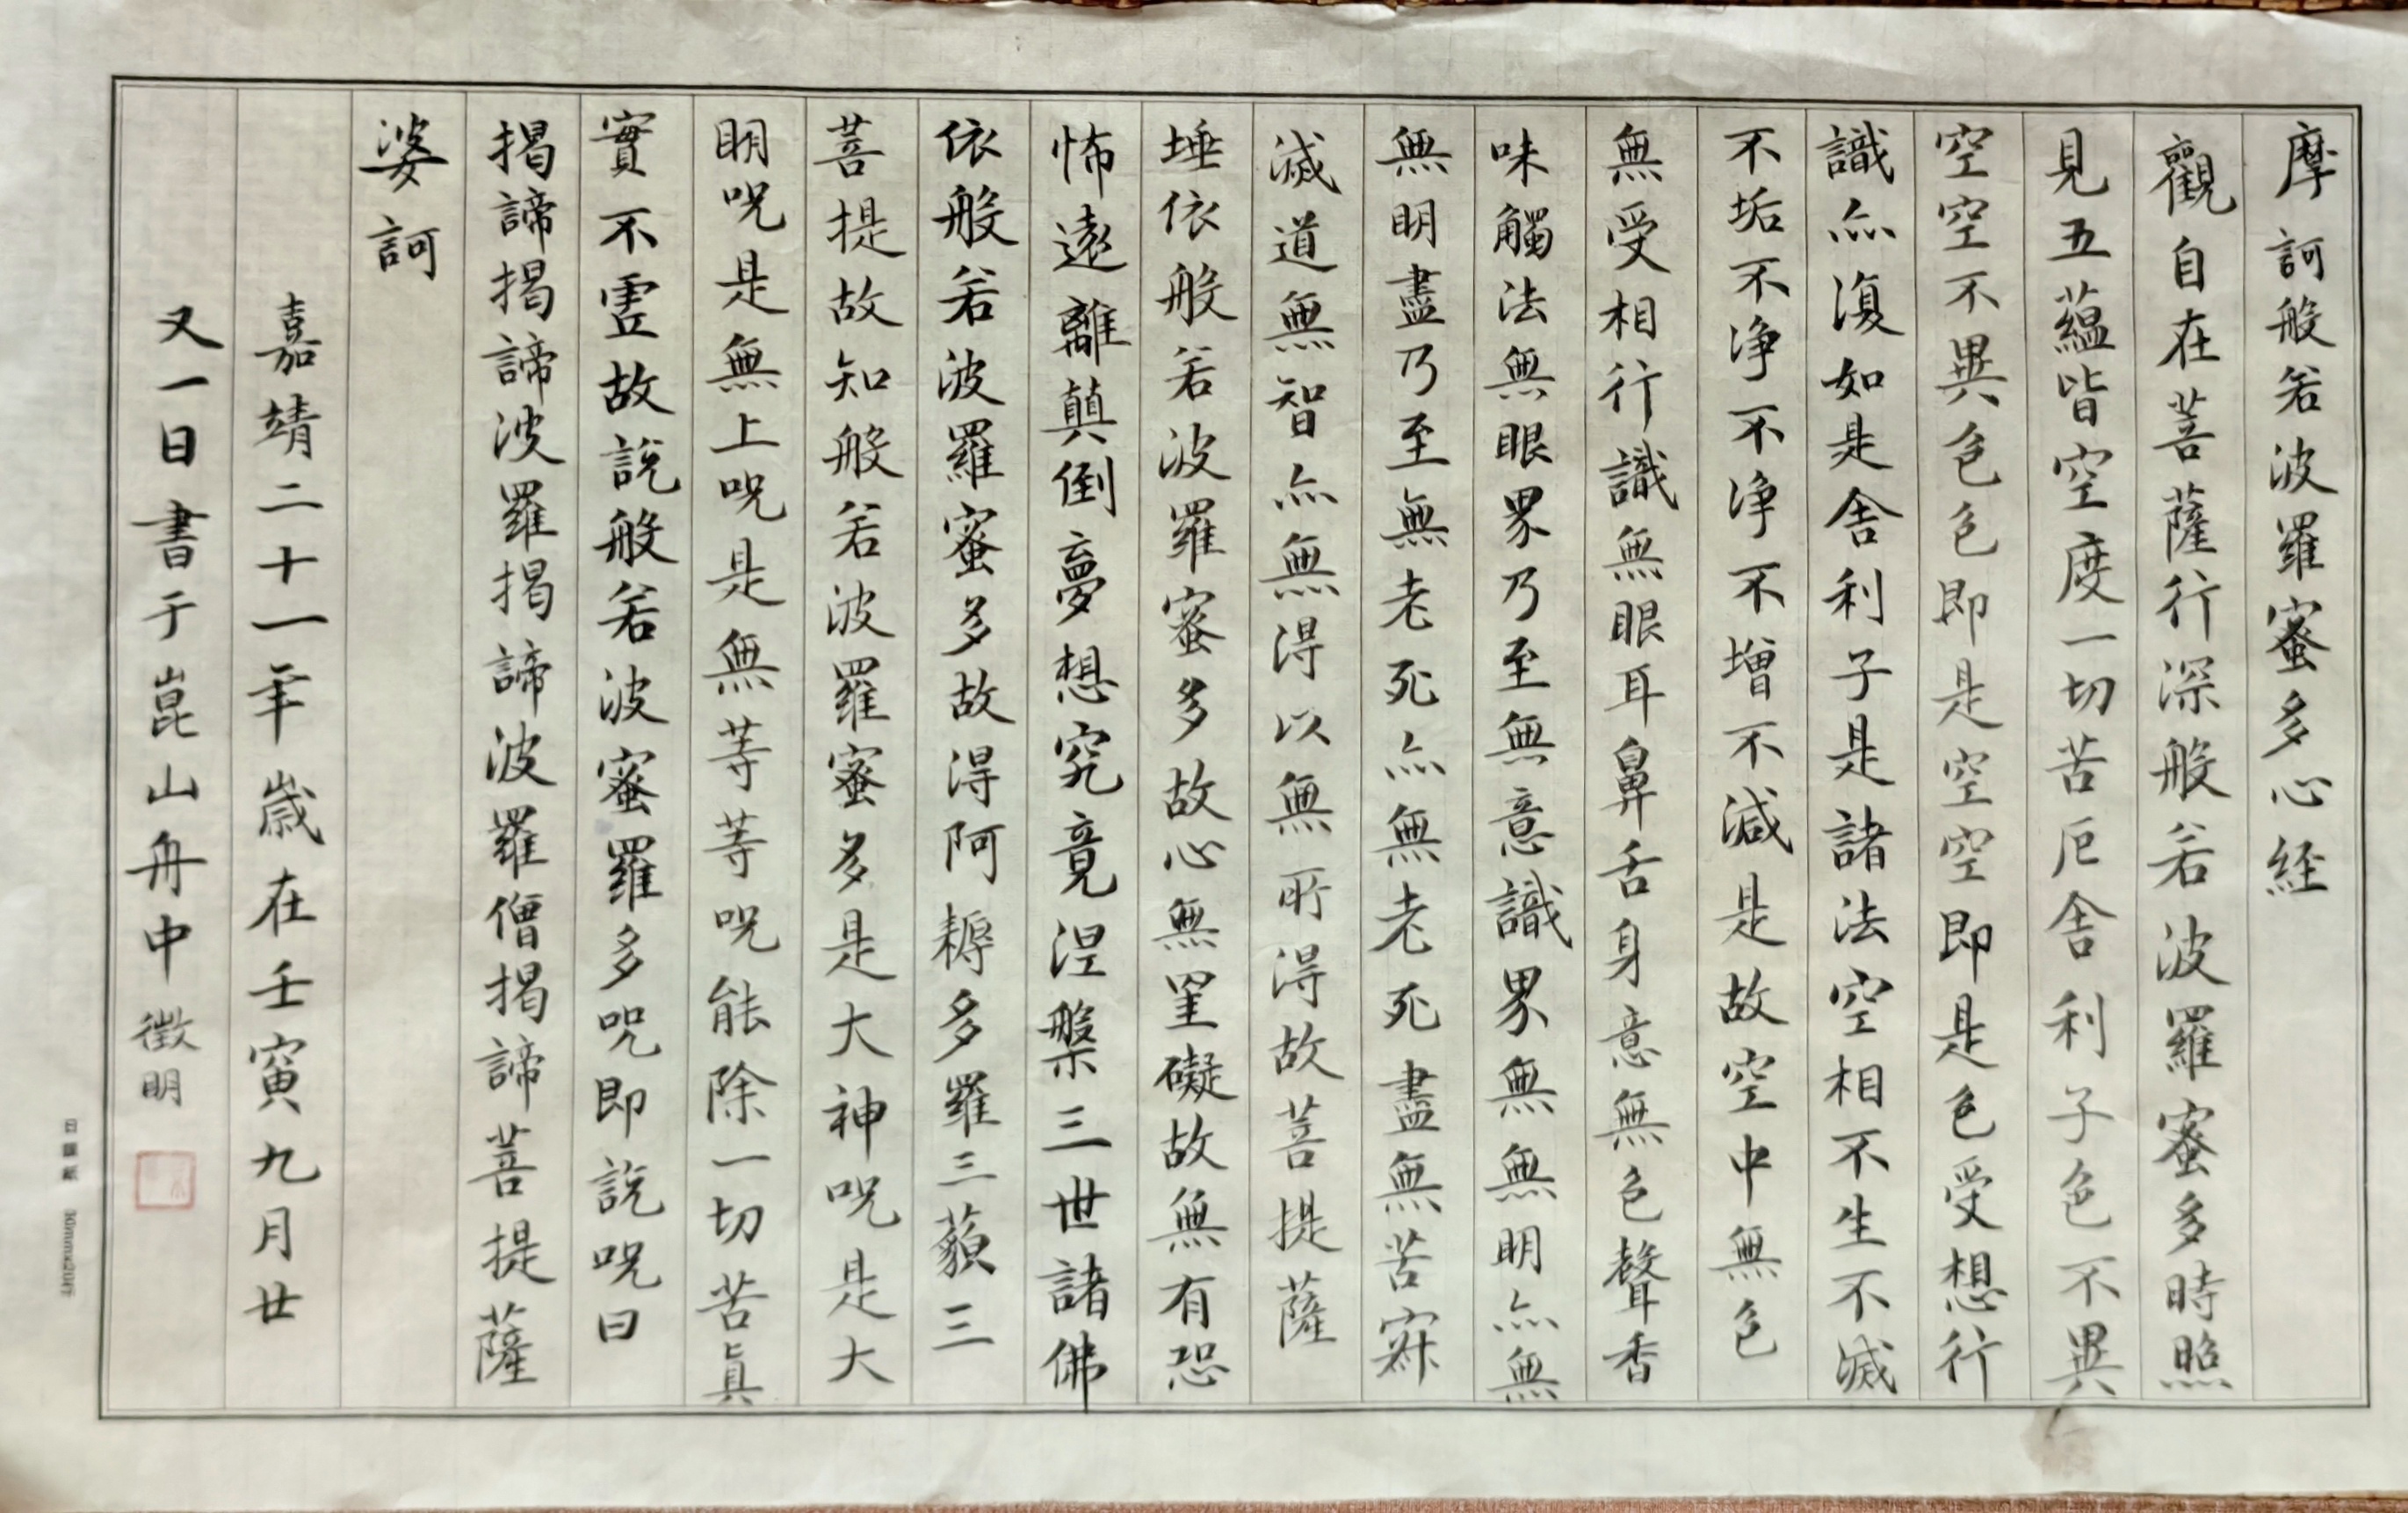 摩訶般若波羅蜜多心経
觀自在菩薩行深般若波羅蜜多時照
見五蘊皆空度一切苦厄舍利子色不異
空空不異色色即是空空即是色受想行
識亦復如是舍利子是諸法空相不生不滅
不垢不净不净不增不減是故空中無色
無受相行識無眼耳鼻舌身意無色聲香
味觸法無眼界乃至無意識界無無明亦無
無明盡乃至無老死亦無老死盡無苦寂
滅道無智亦無得以無所得故菩提薩
埵依般若波羅蜜多故心無罣礙故無有恐
怖遠離顛倒夢想究竟涅槃三世諸佛
依般若波羅蜜多故得阿耨多羅三藐三
菩提故知般若波羅蜜多是大神咒是大
明咒是無上咒是無等等咒能除一切苦真
實不虛故說般若波蜜羅多咒即說咒曰
揭諦揭諦波羅揭諦波羅僧揭諦菩提薩
婆訶
嘉靖二十一年歲在壬寅九月廿
又一日書于崑山舟中徵明